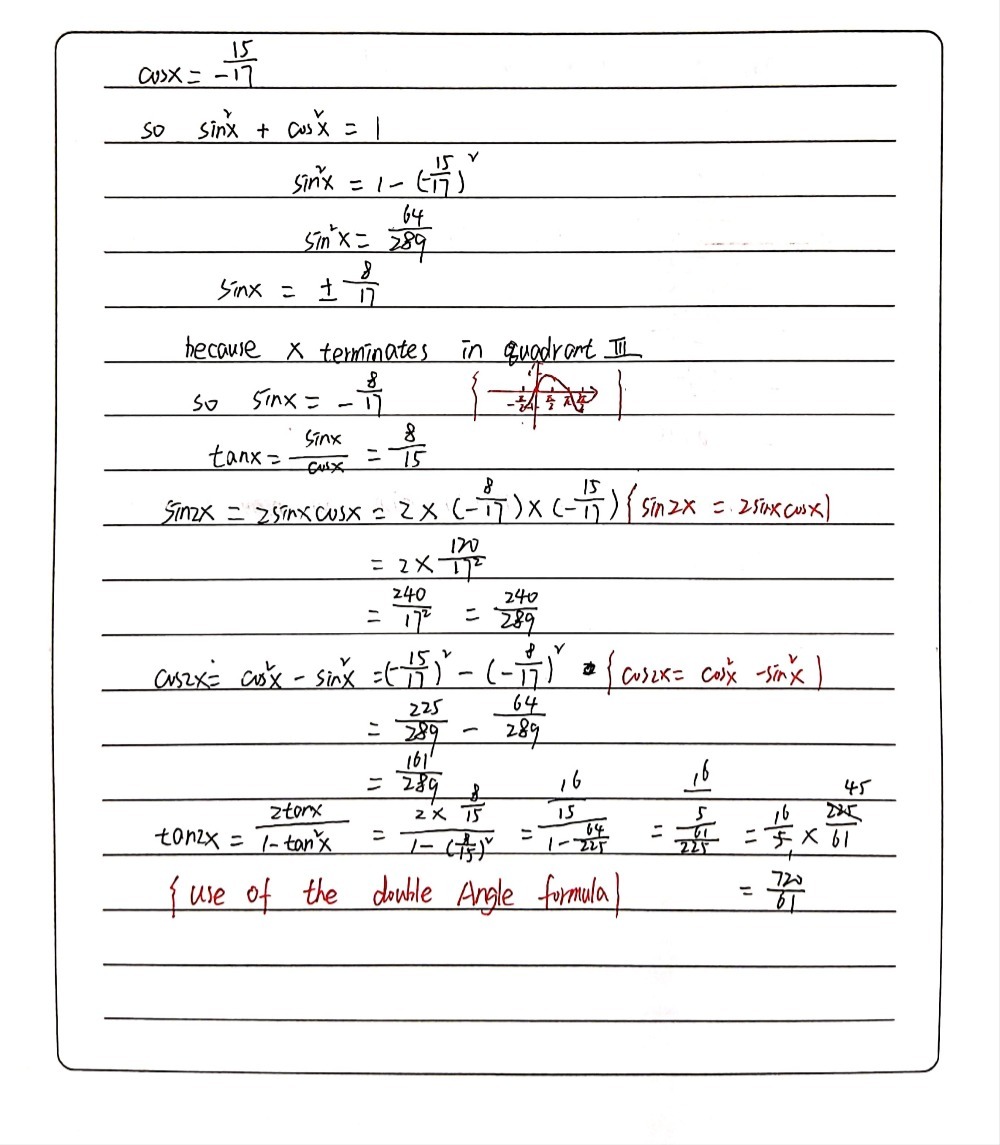 cosx = 15/-17
so sin²x + cos²x = 1
sin²x = 1 - (-15/17)²
sin²x = 64/289
sinx = ± 8/17
because x terminates in quadrant III
so sinx = - 8/17 { }
tanx = sinx/cosx = 8/15
sin2x = 2sinxcosx = 2 × (-8/17) × (-15/17) {sin2x = 2sinxcosx}
= 2 × 120/17²
= 240/17² = 240/289
cos2x = cos²x - sin²x = (-15/17)² - (-8/17)² {cos2x = cos²x - sin²x}
= 225/289 - 64/289
= 161/289
tan2x = 2tanx/(1-tan²x) = (2 × 8/15)/(1-(8/15)²) = (16/15)/(1-64/225) = (16/5)/(61/225) = 16/5 × 225/61 45
{use of the double Angle formula} = 720/61